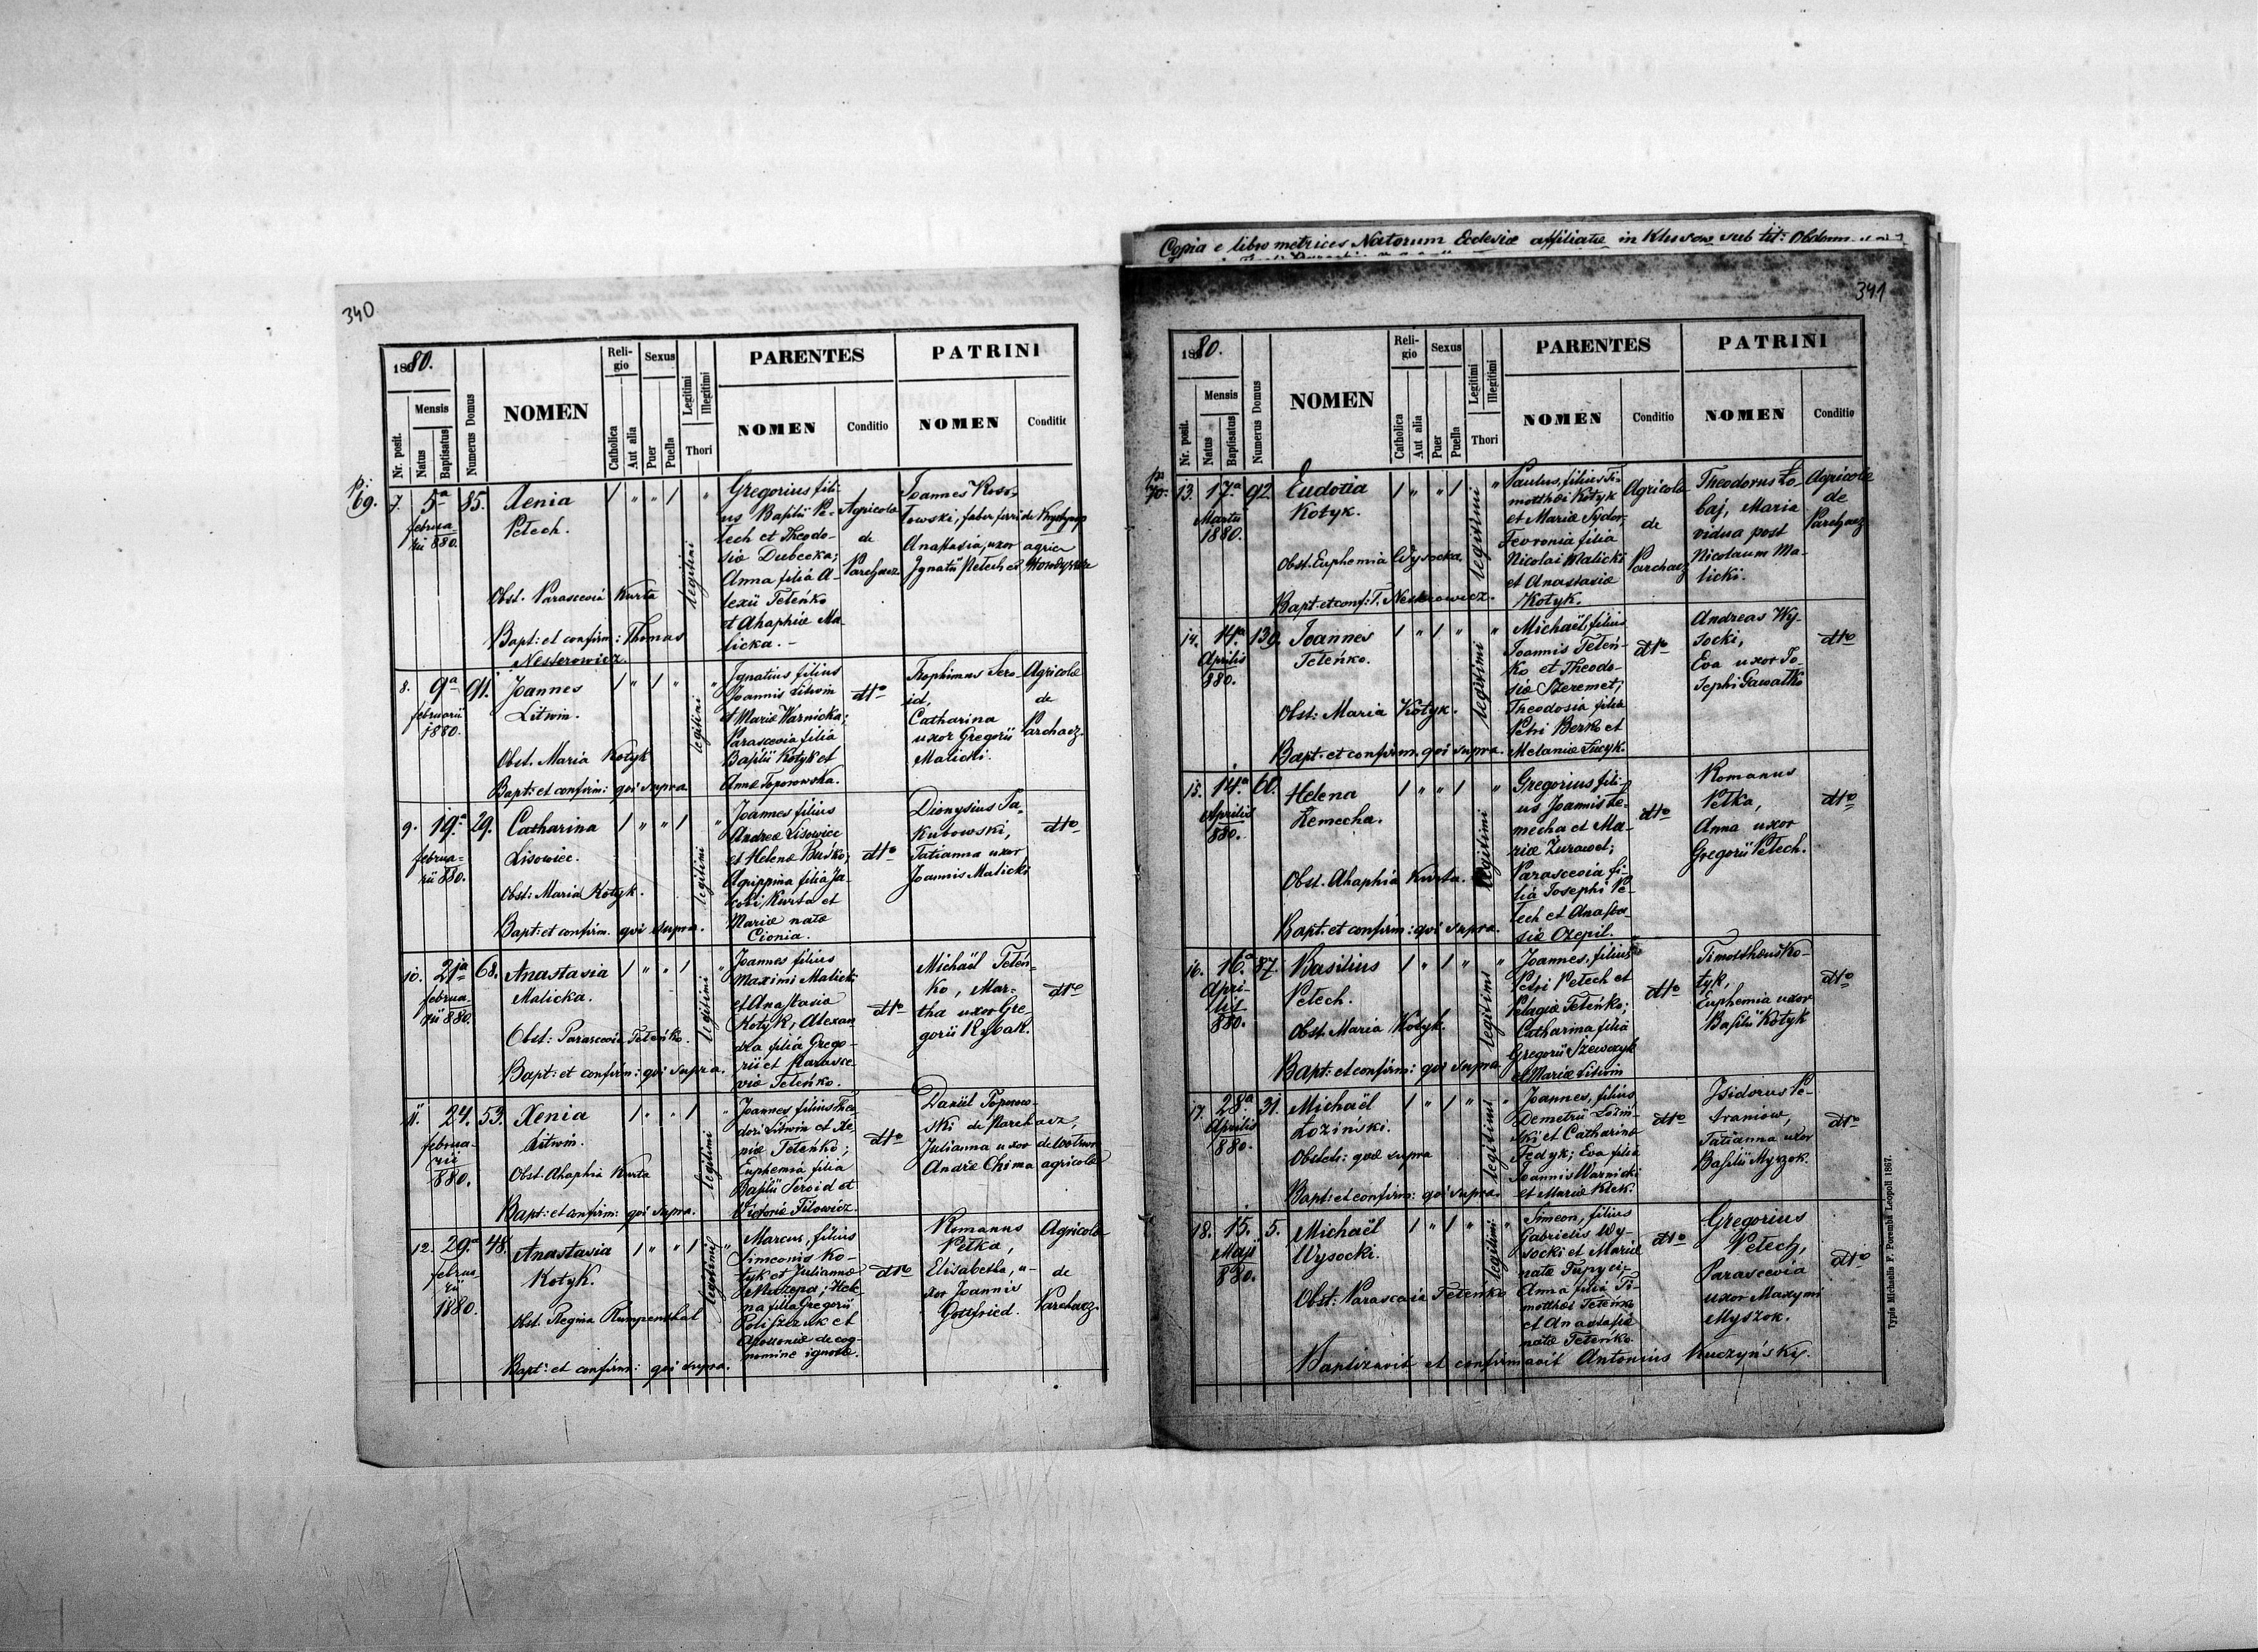 340
1880.
Nr. posit.
Mensis
Natus
Baptisatus
Numerus Domus
NOMEN
Religio
Catholica
Aut alia
Sexus
Puer
Puella
Legitimi
Illegitimi
Thori
PARENTES
NOMEN
Conditio
PATRINI
NOMEN
Conditio
p: 69.
7. 5a februarii 880. 85.
Xenia
Petech.
Obst. Parascevia Kurta
Bapt: et confirm: Thomas
Nesterowicz.
legitimi
Gregorius fili-
us Basilii Pe-
tech et Theodo-
siæ Dubecka;
Anna filia A-
lexii Teteńko
et Ahaphiæ Ma-
licka.-
Agricolæ
de
Parchacz
Joannes Koso-
towski, faber ferri de Krystynop
Anastasia, uxor agricolæ
Ignatii Petech
8. 9a februarii 1880. 91.
Joannes
Litwin.
Obst. Maria Kotyk
Bapt: et confirm: qvi supra
legitimi
Ignatius filius
Joannis Litwin
et Mariæ Warnicka;
Parascevia filia
Basilii Kotyk et
Annæ Toporowska.
dtto
Trophimus Sero-
id,
Catharina
uxor Gregorii
Malicki.
Agricolæ
de
Parchacz.
9. 19a februarii 880. 29.
Catharina
Lisowiec.
Obst: Maria Kotyk.
Bapt: et confirm. qvi supra.
legitimi
Joannes filius
Andreæ Lisowiec
et Helenæ Buśko;
Agrippina filia Ja-
cobi Kurta et
Mariæ natæ
Cionia.
dtto
Dionysius Ja-
kubowski,
Tatianna uxor
Joannis Malicki
dtto
10. 21a februarii 880. 68.
Anastasia
Malicka.
Obst: Parascevia Teteńko.
Bapt: et confirm: qvi supra.
legitimi
Joannes filius
Maximi Malicki
et Anastasia
Kotyk; Alexan-
dra filia Grego-
rii et Parasce-
viæ Teteńko.
dtto
Michaël Teteń-
ko, Mar-
tha uxor Gre-
gorii Rybak.
dtto
11. 24. februarii 880. 53.
Xenia
Litwin.
Obst. Ahaphia Kurta
Bapt: et confirm: qvi supra.
legitimi
Joannes filius Theo-
dori Litwin et Xe-
niæ Teteńko;
Euphemia filia
Basilii Seroid et
Victoriæ Filowicz.
dtto
Daniel Toporow-
ski de Parchacz,
Julianna uxor
Andreæ Chima agricolæ
12. 29a februarii 1880. 48.
Anastasia
Kotyk.
Obst. Regina Rumpenthal
Bapt: et confirm: qvi supra.
legitimi
Marcus, filius
Simeonis Ko-
tyk et Juliannæ
Mazepa; Hele-
na filia Gregorii
Poliszczuk et
Apolloniæ de cog-
nomine ignotæ.
dtto
Romanus
Petka,
Elisabetha, u-
xor Joannis
Gottfried.
Agricolæ
de
Parchacz.
Copia e libro metrices Natorum Ecclesiæ affiliatæ in Klusow sub tit:
341
1880.
Nr. posit.
Mensis
Natus
Baptisatus
Numerus Domus
NOMEN
Religio
Catholica
Aut alia
Sexus
Puer
Puella
Legitimi
Illegitimi
Thori
PARENTES
NOMEN
Conditio
PATRINI
NOMEN
Conditio
70.
13. 17a Martii 1880. 92.
Eudotia
Kotyk.
Obst. Euphemia Wysocka
Bapt: et conf: T. Nesterowicz.
legitimi
Paulus, filius Ti-
mothei Kotyk
et Mariæ Sydor;
Fevronia filia
Nicolai Malicki
et Anastasiæ
Kotyk.
Agricolæ
de
Parchacz
Theodorus Ło-
baj, Maria
vidua post
Nicolaum Ma-
licki.
Agricolæ
de
Parchacz
14. 14a Aprilis 880. 130.
Joannes
Teteńko.
Obst: Maria Kotyk.
Bapt: et confirm. qvi supra.
legitimi
Michaël, filius
Joannis Teteń-
ko et Theodo-
siæ Szeremet;
Theodosia filia
Petri Berko et
Melaniæ
dtto
Andreas Wy-
socki,
Eva uxor Jo-
sephi Gawałko
dtto
15. 14a Aprilis 880. 60.
Helena
Łemecha.
Obst. Ahaphia Kurta.
Bapt. et confirm: qvi supra.
legitimi
Gregorius fili-
us Joannis Łe-
mecha et Ma-
riæ Żurawel;
Parascevia fi-
lia Josephi Pe-
tech et Anasta-
siæ Czepil.
dtto
Romanus
Petka,
Anna uxor
Gregorii Petech.
dtto
16. 16a Aprilis 880. 87.
Basilius
Petech.
Obst. Maria Kotyk.
Bapt: et confirm: qvi supra
legitimi
Joannes, filius
Petri Petech et
Pelagiæ Teteńko;
Catharina filia
Gregorii Szewczyk
et Mariæ Litwin
dtto
Timotheus Ko-
tyk,
Euphemia uxor
Basilii Kotyk
dtto
17. 28a Aprilis 880. 31.
Michaël
Łozinski.
Obstet: qvæ supra
Bapt: et confirm: qvi supra.
legitimi
Joannes, filius
Demetrii Łozin-
ski et Catharinæ
Fedyk; Eva filia
Joannis Warnicki
et Mariæ Klek.
dtto
Isidorus Pe-
traniow,
Tatianna uxor
Basilii Myszok.
dtto
18. 15. Maji 880. 5.
Michaël
Wysocki.
Obst: Parascevia Teteńko
legitimi
Simeon, filius
Gabrielis Wy-
socki et Mariæ
natæ Tupyci;
Anna filia Ti-
mothei Teteńko
et Anastasiæ
natæ Teteńko
dtto
Gregorius
Petech,
Parascevia
uxor Maxymi
Myszok.
dtto
Baptizavit et confirmavit Antonius Kuczyński.
Typis Michaelis F. Poremba Leopoli 1867.